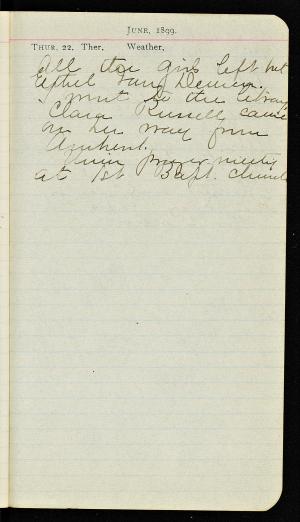 June, 1899.
Thur. 22. Ther. Weather.
All the girls left but
Ethel and
I went to the library
Clara Russell came
on her way from
Amherst.
Union prayer meeting
at 1st Bapt. church